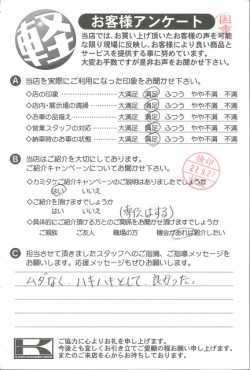 軽
お客様アンケート
当店では、お買い上げ頂いたお客様の声を可能
な限り現場に反映し、お客様により良い商品と
サービスを提供する事に努めています。
大変お手数ですが是非お聞かせ下さい。
A 当店を実際にご利用になった印象をお聞かせ下さい。
◇店の印象 大満足 満足 ふつう やや不満 不満
◇店内・展示場の清掃 大満足 満足 ふつう やや不満 不満
◇お車の品揃え 大満足 満足 ふつう やや不満 不満
◇営業スタッフの対応 大満足 満足 ふつう やや不満 不満
◇納車時のお車の状態 大満足 満足 ふつう やや不満 不満
B 当店はご紹介を大切にしております。
ご紹介キャンペーンについてお聞かせ下さい。
◇カミタケご紹介キャンペーンのご説明はありましたでしょうか
はい いいえ
◇ご紹介を頂けますでしょうか
はい いいえ
◇具体的にご紹介頂ける方とのご関係をお聞かせ頂けますでしょうか
ご親族 ご友人 職場の方 機会があれば紹介したい
C 担当させて頂きましたスタッフへのご指摘、ご指導メッセージを
お願いします。応援メッセージもぜひお願いします。
ムダなく、ハキハキとして、良かった。
K
ご協力に心よりお礼を申し上げます。
今後とも宜しくお引き立てご愛顧の程お願い申し上げます。
またのご来店を心からお待ちしております。